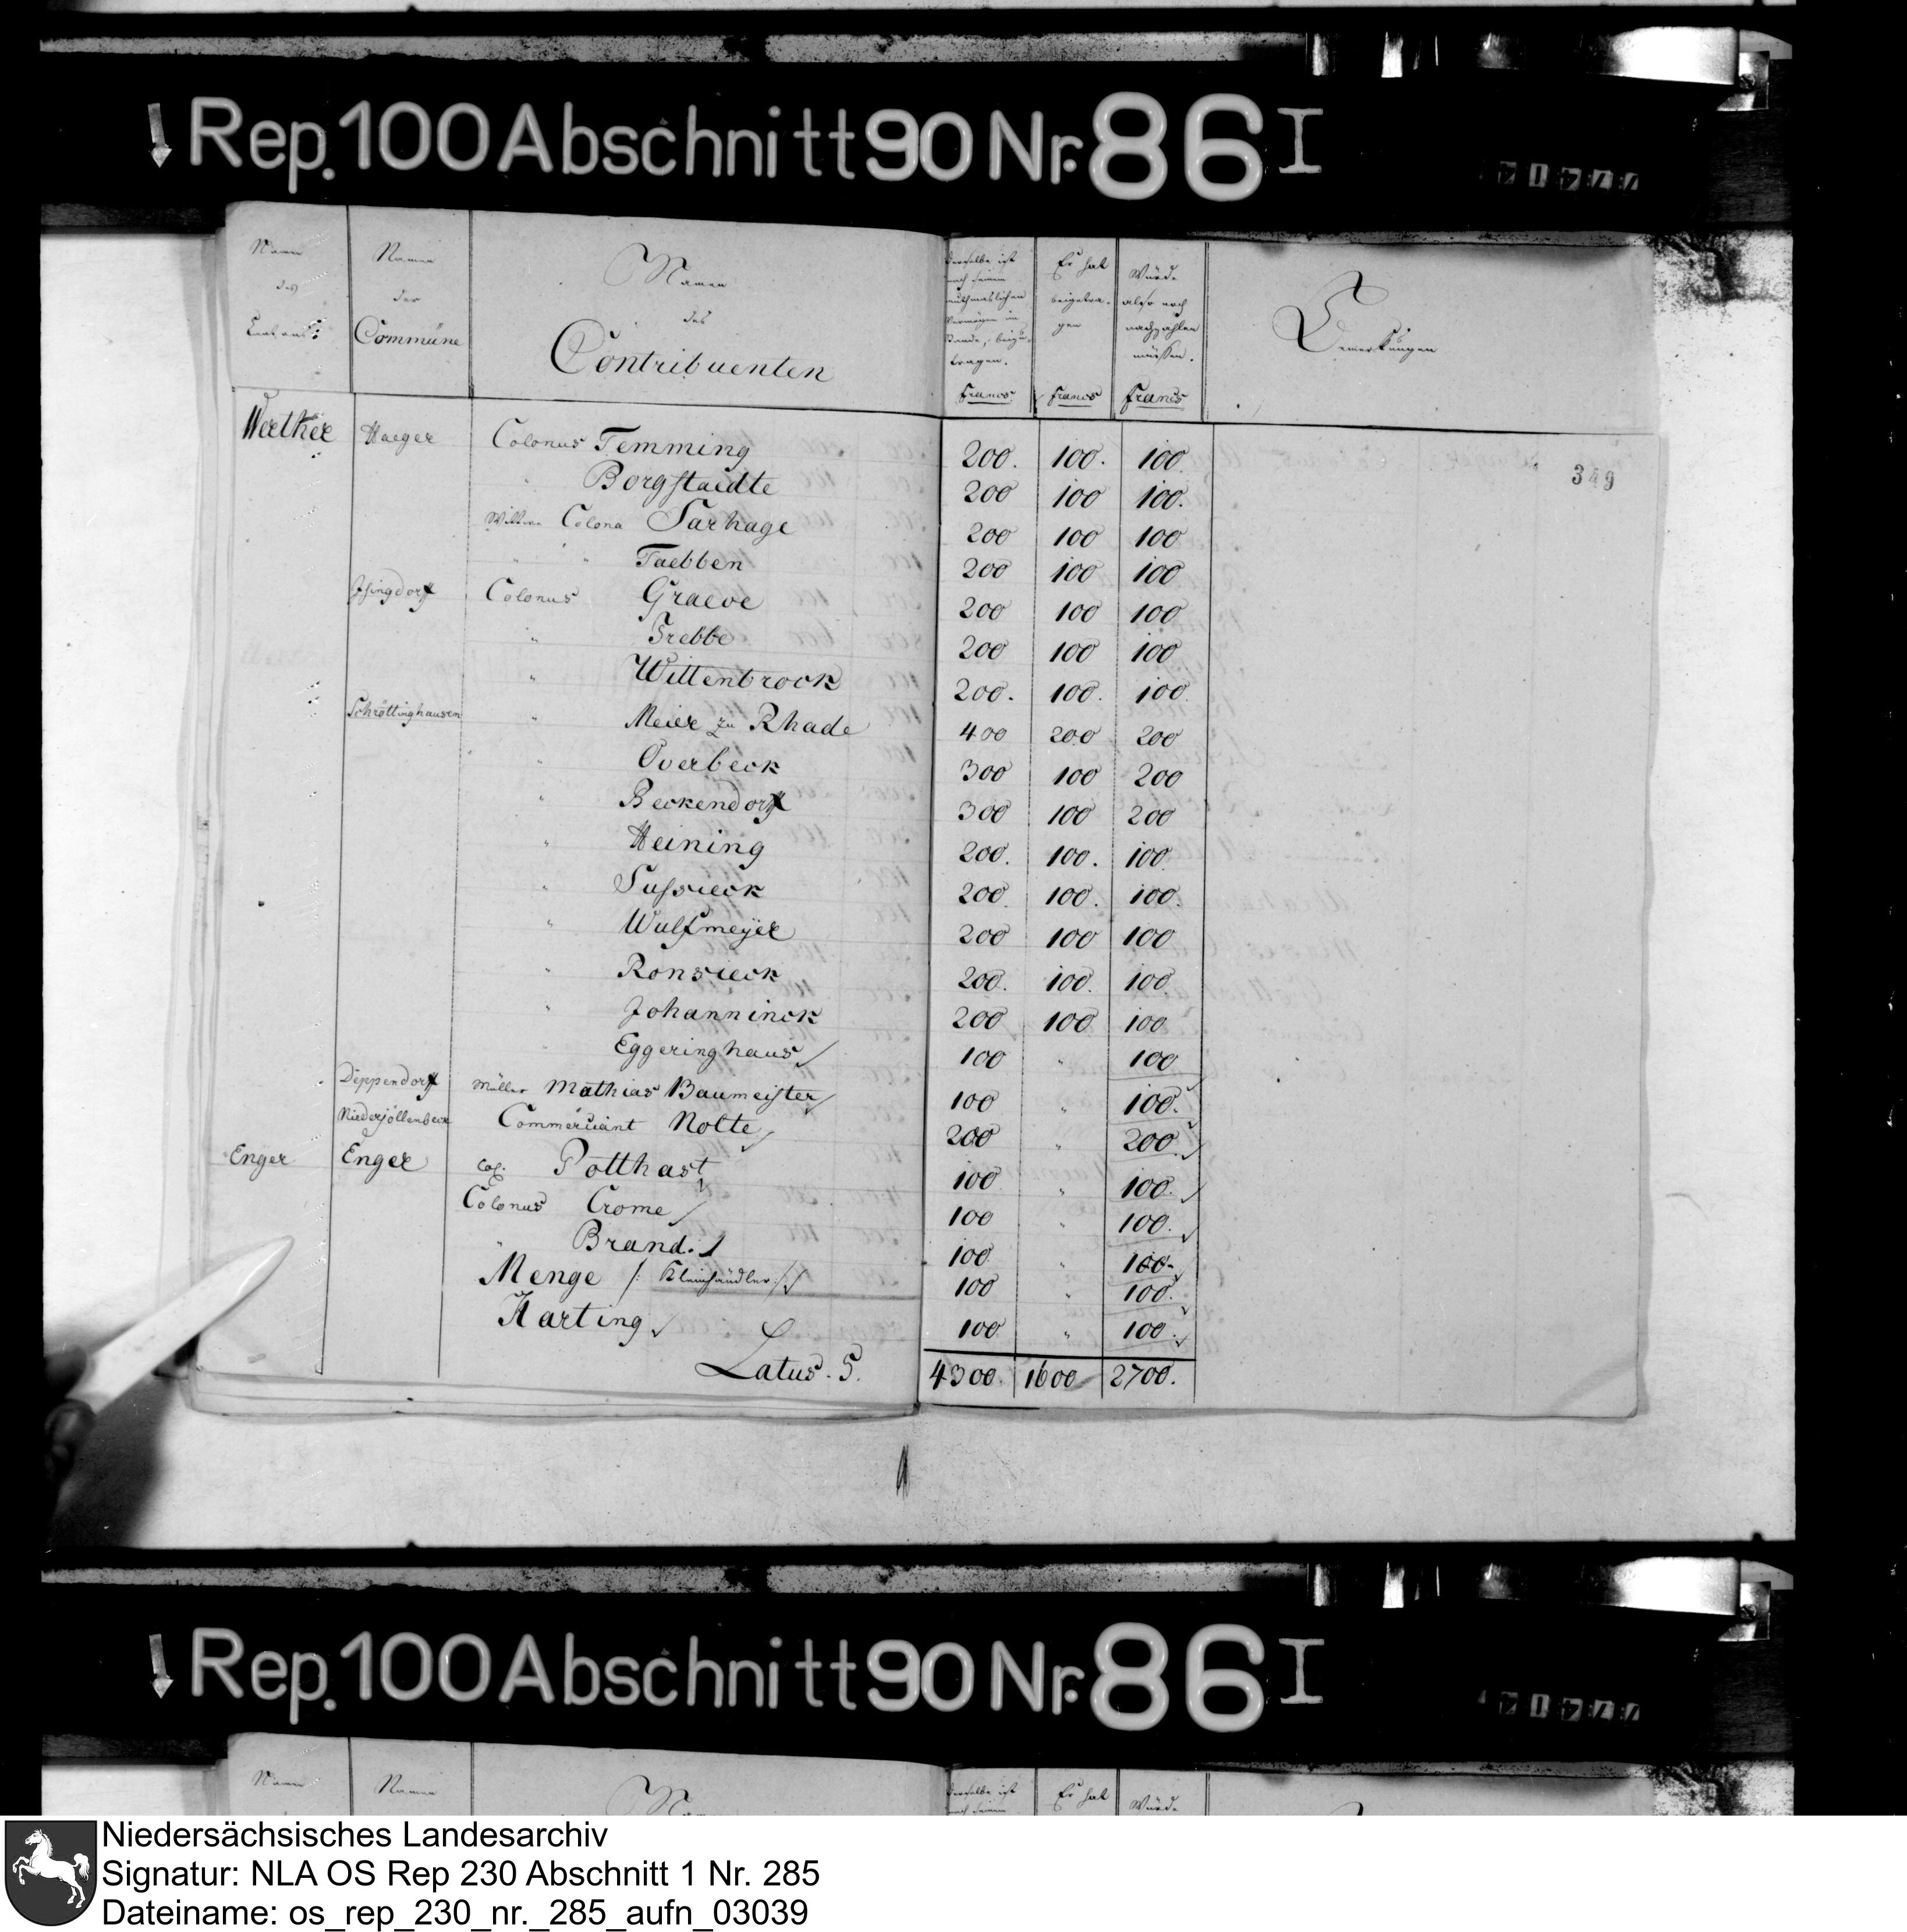 Rep. 100 Abschnitt 90 Nr. 86 I
Namen des Cantons
Namen der Commüne
Namen des Contribuenten
derselbe ist nach seinem muthmaslichen Vermögen im Stande, beizutragen. Francs
Er hat beigetragen Francs
Würde also noch nachzahlen müssen. Francs
Bemerkungen
349
Werther Haeger Colonus Temming 200. 100. 100.
Borgstaedte 200 100 100.
Wittwe Colona Sarhage 200 100 100
" " Taebben 200 100 100
Isingdorff Colonus Graeve 200 100 100
" Trebbe 200 100 100
" Wittenbrock 200. 100. 100.
Schröttinghausen " Meier zu Rhade 400 200 200
" Overbeck 300 100 200
" Beckendorff 300 100 200
" Heining 200. 100. 100.
" Sussieck 200. 100. 100.
" Wulfmeÿer 200 100 100
" Ronsieck 200. 100. 100
" Johanninck 200 100 100
" Eggeringhaus 100 " 100
Deppendorff Müller Mathias Baumeister 100 " 100.
Niederjöllenbeck Commerciant Nolte 200 " 200.
Enger Enger Col. Potthast 100 " 100.
Colonus Crome 100 " 100.
" Brand. 100 " 100.
Menge /: Kleinhändler :/ 100 " 100.
Harting 100 " 100.
Latus. 5. 4300. 1600 2700.
Rep. 100 Abschnitt 90 Nr. 86 I
Namen
Namen
derselbe ist
nach seinem
Er hat
Würde
Niedersächsisches Landesarchiv
Signatur: NLA OS Rep 230 Abschnitt 1 Nr. 285
Dateiname: os_rep_230_nr._285_aufn_03039